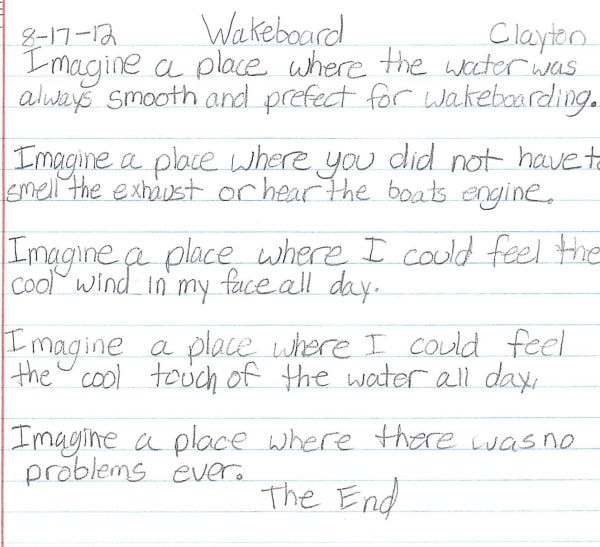 8-17-12 Wakeboard Clayton
Imagine a place where the water was
always smooth and prefect for wakeboarding.
Imagine a place where you did not have to
smell the exhaust or hear the boats engine.
Imagine a place where I could feel the
cool wind in my face all day.
Imagine a place where I could feel
the cool touch of the water all day,
Imagine a place where there was no
problems ever.
The End